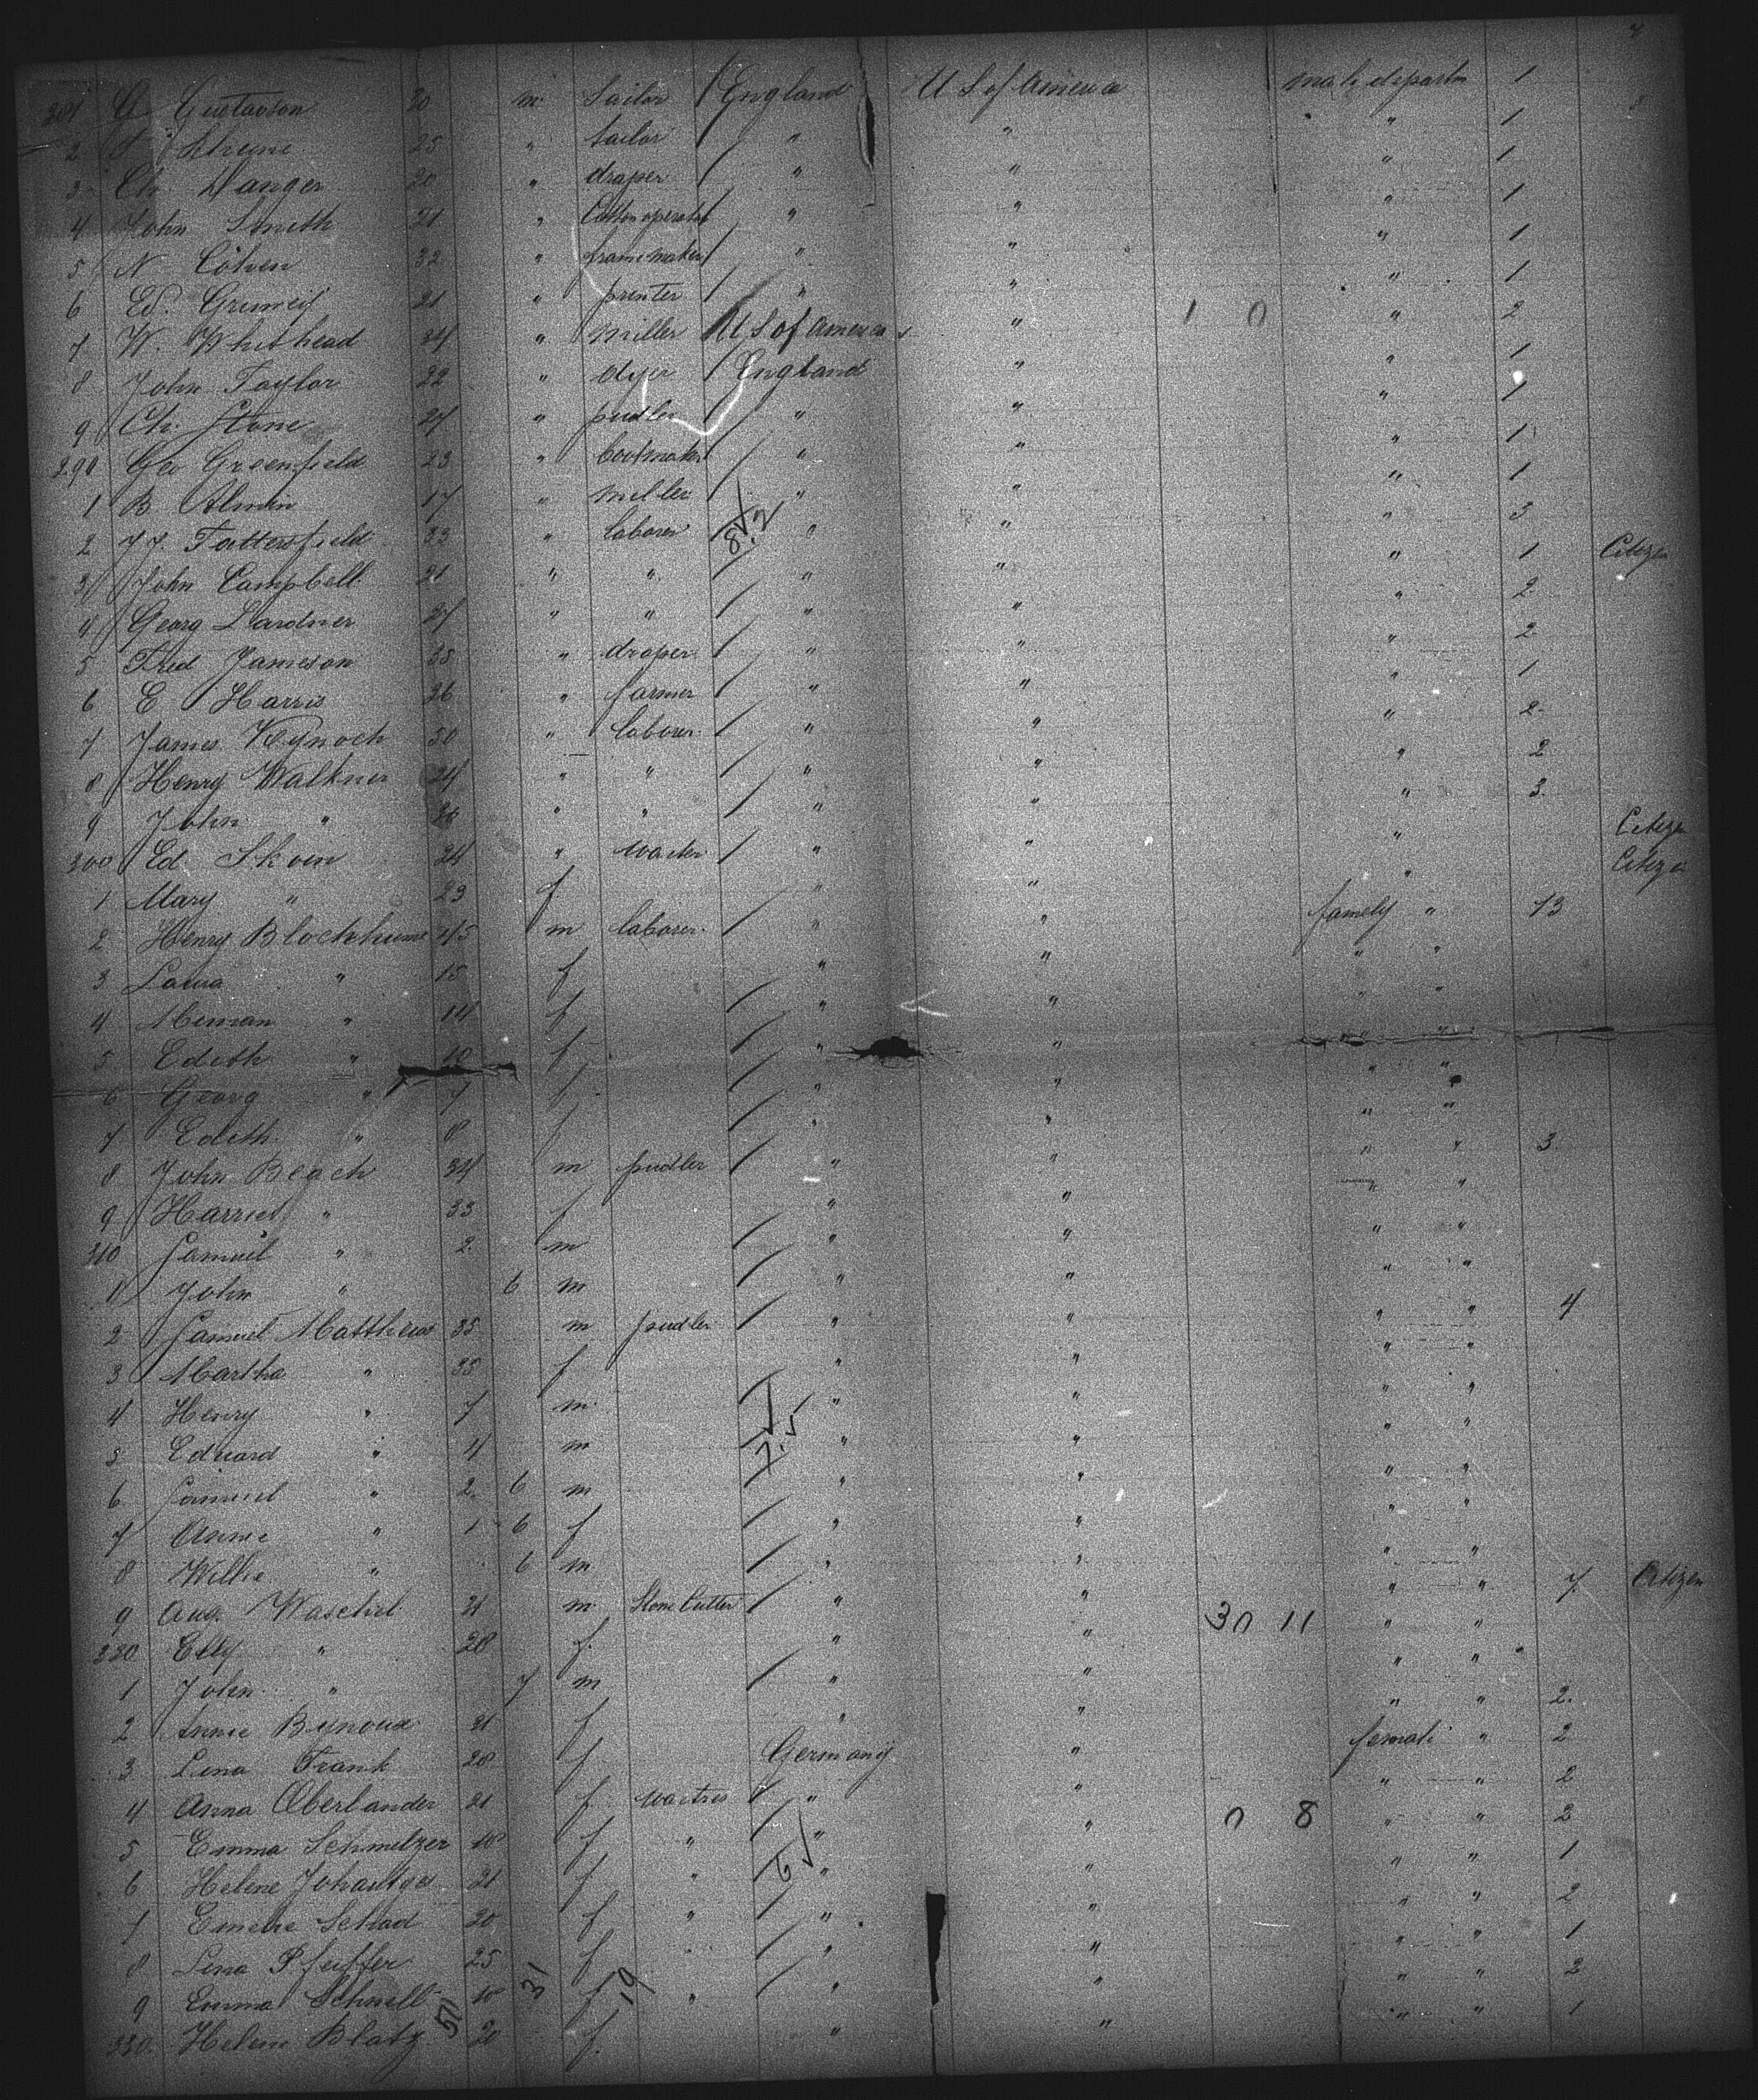 281 G Gustavson 20 m Sailor England U S of America male departm 1
2 25 " tailor " " " 1
3 Ch. Danger 20 " draper " " " 1
4 John Smith 21 " Cotton operator " " " 1
5 N Cohen 32 " frame maker " " " 1
6 Ed. 21 " printer " " " 1
7 W. Whithead 24 " miller U S of America " 1 0 " 2
8 John Taylor 22 " dyer England " " 1
9 Ch. Stone 24 " pudler " " " 1
290 Geo Greenfield 23 " bootmaker " " " 1
1 B. Almin 17 " miller " " " 1
2 Tattersfield 33 " laborer " " " 3
3 John Campbell 21 " " " " " 1 Citizen
4 Georg Lardner 27 " " " " " 2
5 Fred Jameson 35 " draper " " " 2
6 E Harris 26 " farmer " " " 1
7 James Kynoch 30 " laborer " " " 2
8 Henry Walkner 24 " " " " " 2
9 John " " " " " " 3
300 Ed. Skoin 24 " waiter " " " Citizen
1 Mary " 23 f " " " Citizen
2 Henry 45 m laborer " " family " 13
3 Laura " 15 f " " " "
4 " 14 f " " " "
5 Edith " 10 f " " " "
6 Georg " 7 f " " " "
7 Edith " 8 f " " " "
8 John Beach 34 m pudler " " " " 3
9 Harriet " 33 f " " " "
310 Samuel " 2 m " " " "
11 John " 6 m " " " "
2 Samuel Matthews 35 m pudler " " " " 4
3 Martha " 35 f " " " "
4 Henry " 7 m " " " "
5 Eduard " 4 m " " " "
6 Samuel " 2 6 m " " " "
7 Annie " 1 6 f " " " "
8 Willie " 6 m " " " "
9 Aug. Waschel 31 m Stone Cutter " " " " 7 Citizen
320 Elly " 28 f " " 30 11 " "
1 John " 7 m " " " "
2 Annie 31 f " " " " 2
3 Lena Frank 28 f Germany " female " 2
4 Anna Oberlander 21 f waitress " " " " 2
5 Emma Schmelzer 18 f " " " 0 8 " " 2
6 Helene 21 f " " " " " 1
7 Emelie Schad 20 f " " " " " 2
8 Lena Pfeiffer 25 f " " " " " 1
9 Emma Schnell 18 f " " " " " 2
330 Helene Blatz 20 f " " " " 1
51 31 19